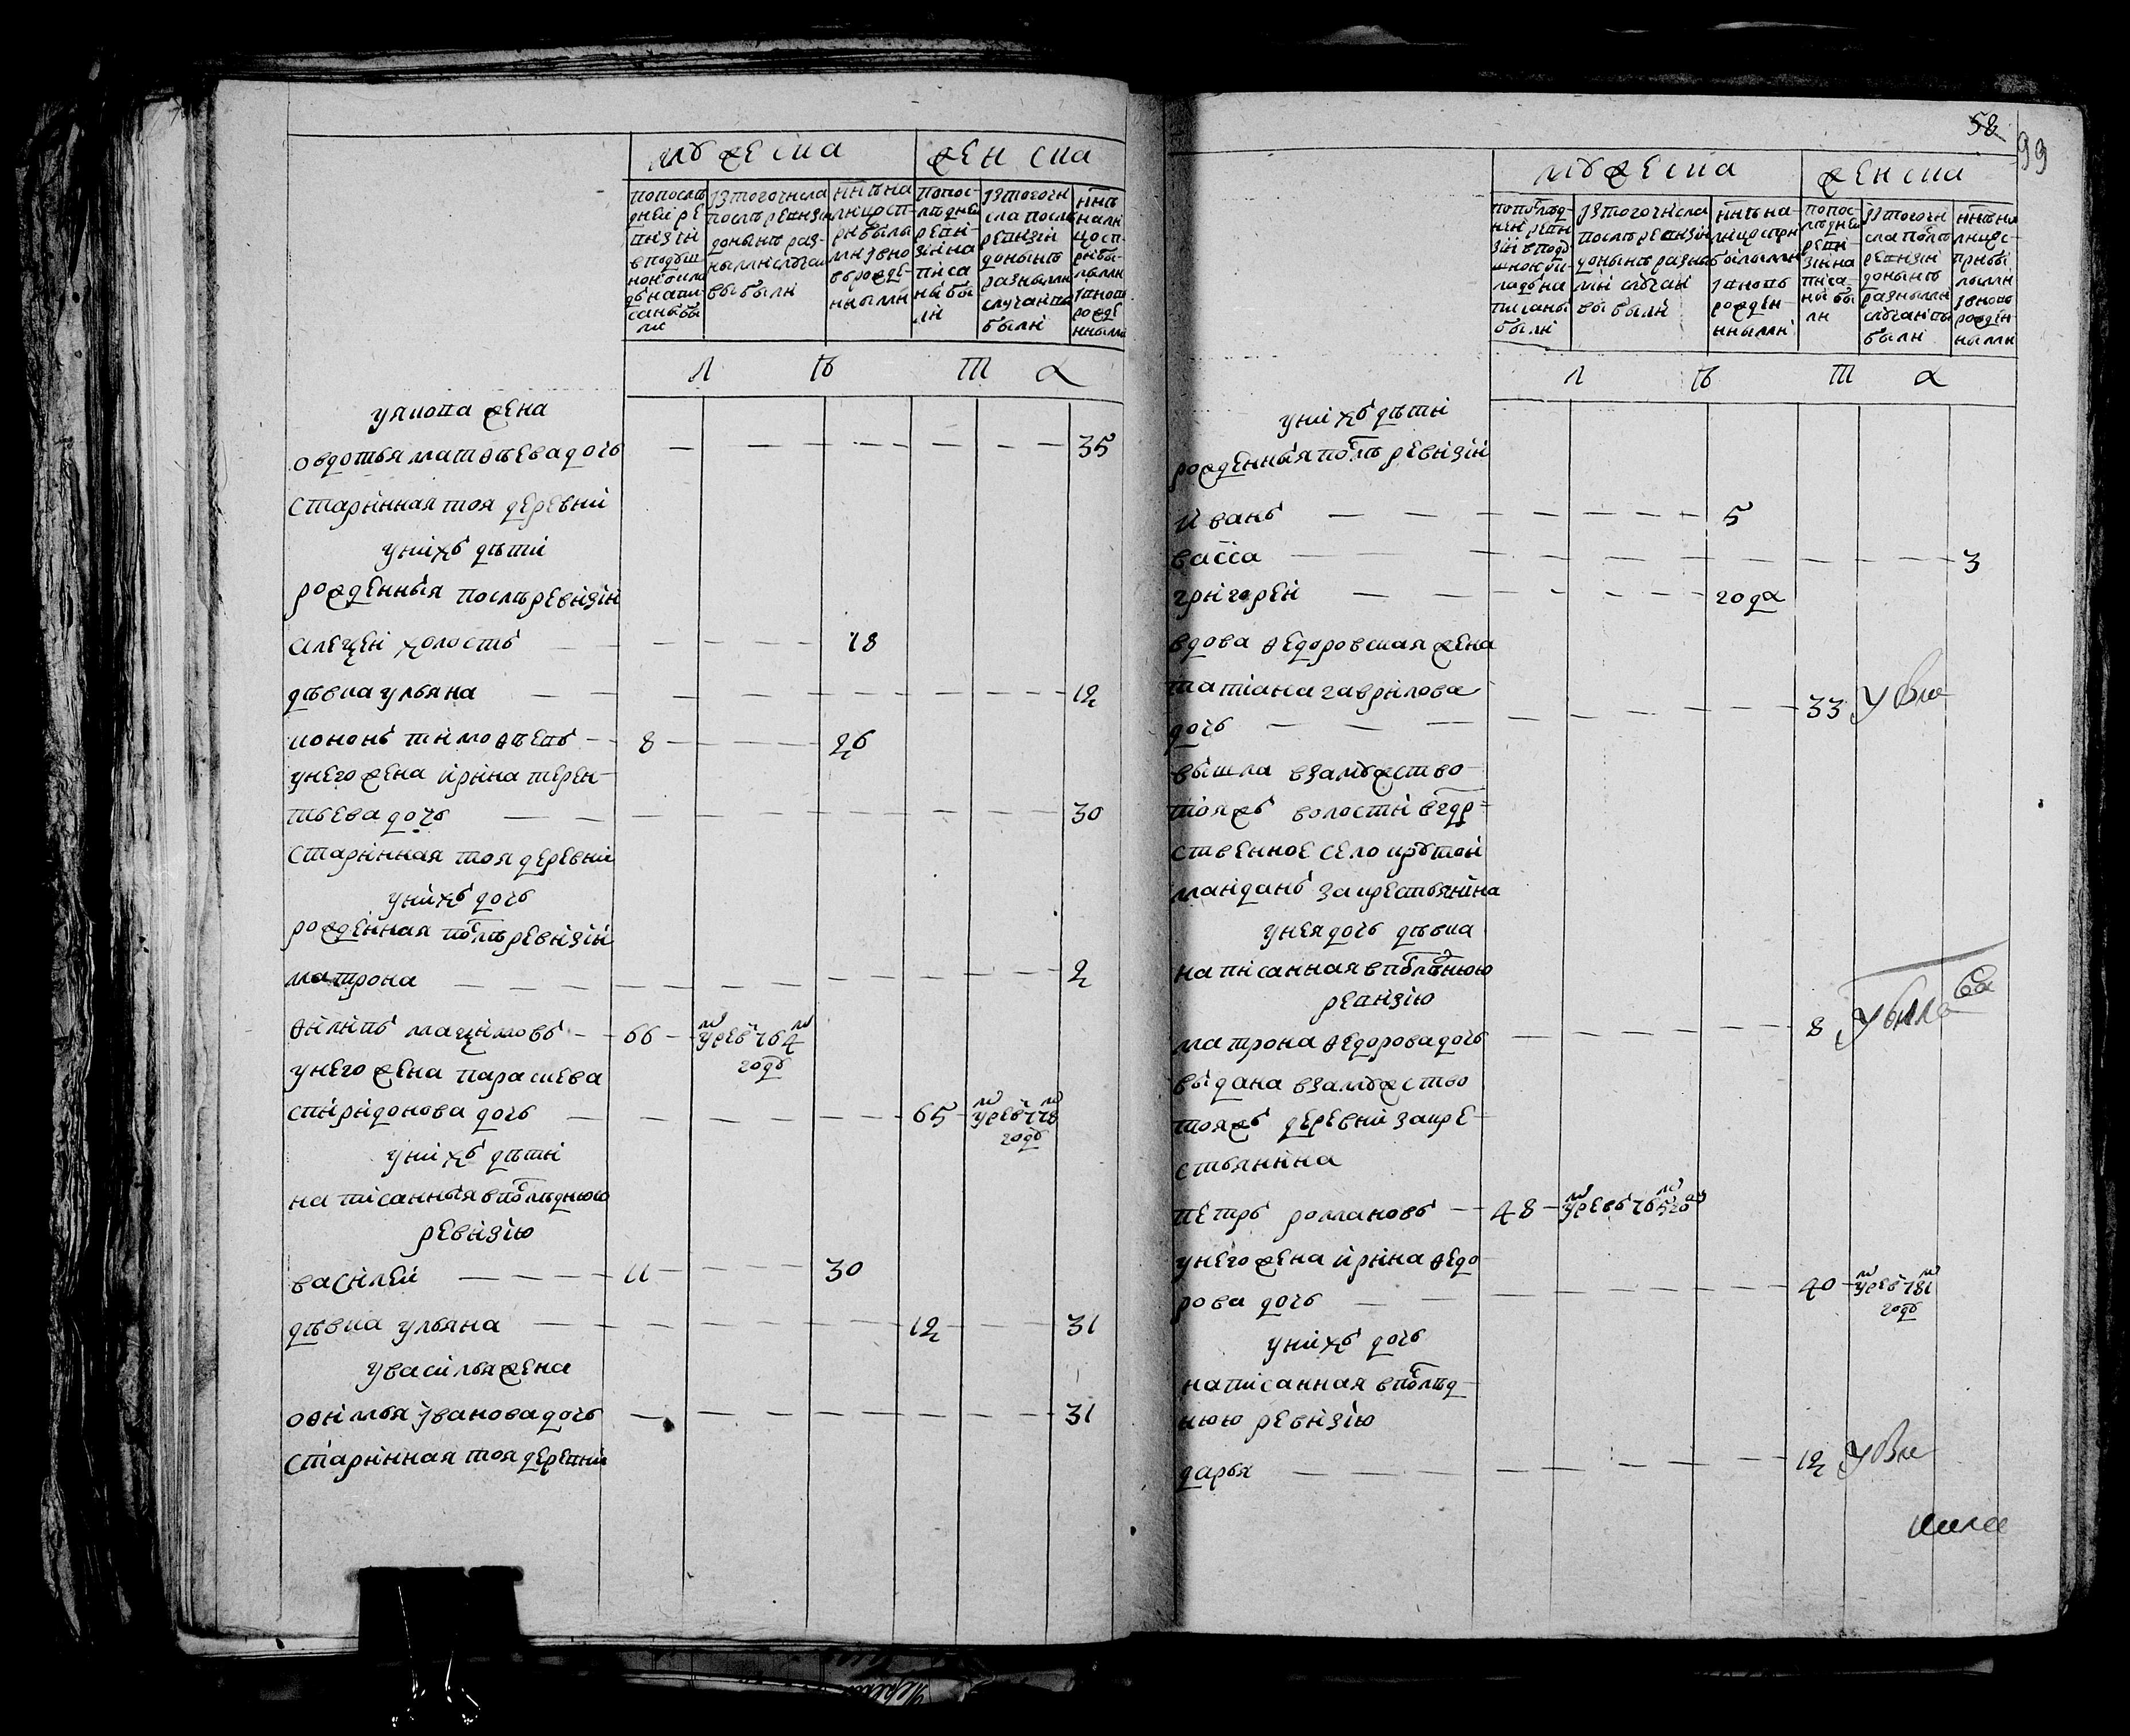 мужеска женска
по после
дней ре
визіи
в подуш
ной окла
дъ напи
саны бы
ли
із того числа
после ревизіи
до нынѣ раз
ными случаи
выбыли
ныне на
лицо с п
рибылы
ми і вно
в рожде
нными
по пос
лѣдней
реви
зіи на
писа
ны бы
ли
із того чи
сла после
ревизіи
до нынѣ
разными
случаи вы
были
ннѣ
на ли
цо с п
рибы
лыми
і вновь
рожде
нными
л ѣ т а
у якова жена
овдотья матѳѣева дочь — — — — — — 35
старинная тоя деревни
у нихъ дѣти
рожденныя послѣ ревизіи
алеѯей холостъ — — — 18
дѣвка ульяна — — — — — — 12
кононъ тимоѳѣевъ — 8 — — — 26
у него жена ирина терен
тьева дочь — — — — — — 30
старинная тоя деревни
у нихъ дочь
рожденная после ревизіи
матрона — — — — — — 2
ѳилипъ маѯимовъ — 66 — умре въ 764 м
году
у него жена парасковья
спиридонова дочь — — — — 65 умре въ 778 м
году
у нихъ дѣти
написанныя в последнюю
ревизію
василей — — — 11 — — — 30
дѣвка ульяна — — — — — 12 — — 31
у василья жена
оѳимья іванова дочь — — — — — — 31
старинная тоя деревни
58
99
мужеска женска
по послѣд
ней реви
зіи в поду
шной ок
ладъ на
писаны
были
із того числа
послѣ ревизіи
до нынѣ разны
ми случаи
выбыли
ннѣ на
лицо с при
былыми
і вновь
рожден
нными
по пос
лѣдней
реви
зіи на
писа
ны бы
ли
із того чи
сла после
ревизіи
до нынѣ
разными
случаи вы
были
ннѣ на
лицо с
прибы
лыми
і вновь
рожден
ными
л ѣ т а
у нихъ дѣти
рожденныя после ревизіи
иванъ — — — — — — 5
васса — — — — — — — 3
григорей — — — — — года
вдова ѳедоровская жена
татіана гаврилова
дочь — — — — — — — 33
вышла в замужство
тояжъ волости в гдр
ственное село крутой
майданъ за крестьянина
у нея дочь дѣвка
написанная в последнюю
ревизію
матрона ѳедорова дочь — — — — — 8 убыла
выдана в замужство
тояжъ деревни за кре
стьянина
петръ романовъ — 48 — умре въ 765 м году
у него жена ирина ѳедо
рова дочь — — — — — — 40 — умре въ 781 м
году
у нихъ дочь
написанная в послед
нюю ревизію
дарья — — — — — — 12